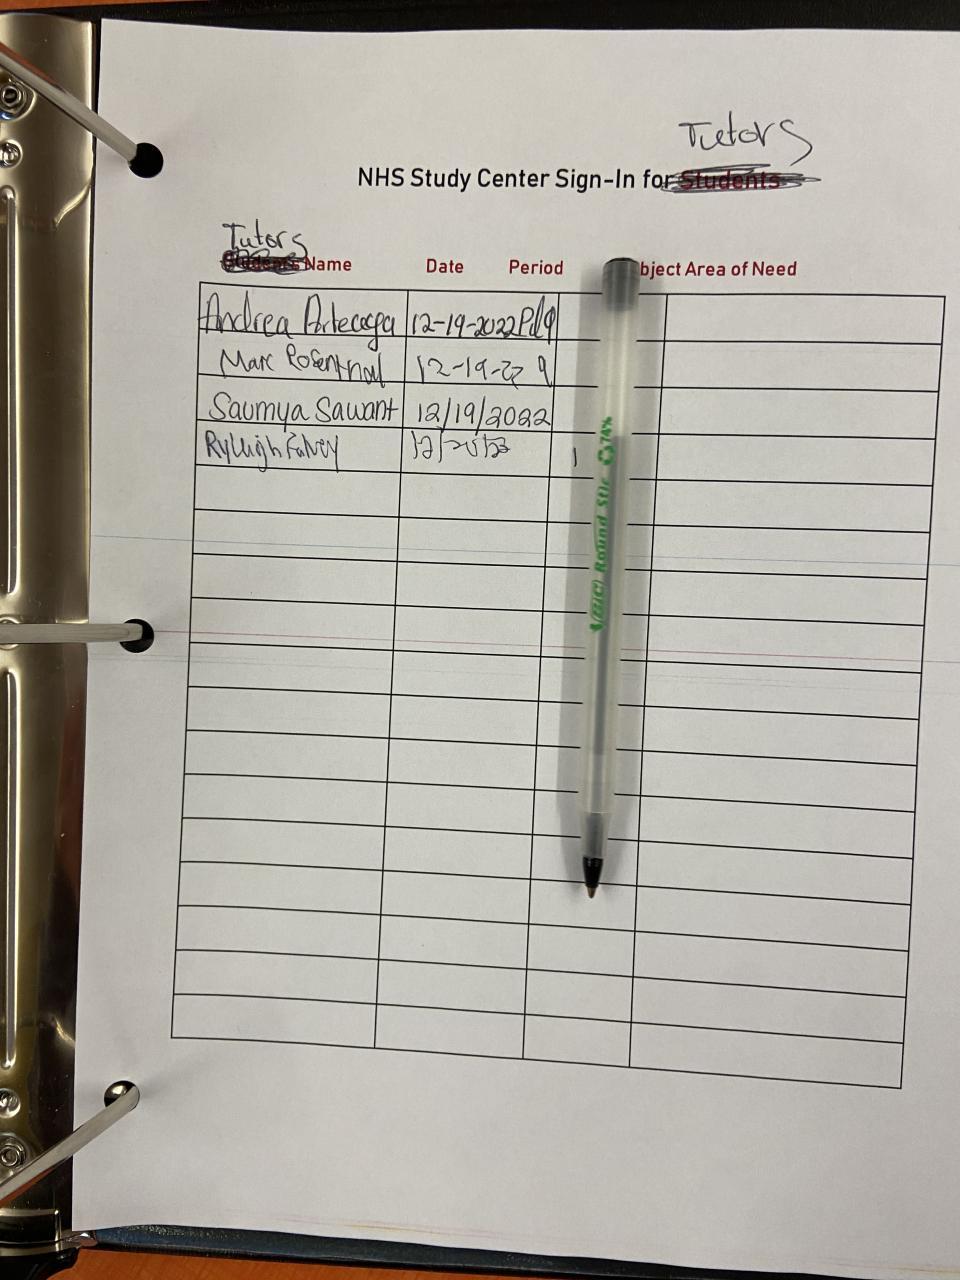 Tutors
NHS Study Center Sign-In for Students
Tutors
Students Name Date Period bject Area of Need
Andrea Artecoga 12-19-2022 Pd 9
Marc Rosenthal 12-19-22 9
Saumya Sawant 12/19/2022
Ryleigh 1
BIC Round Stic 74%